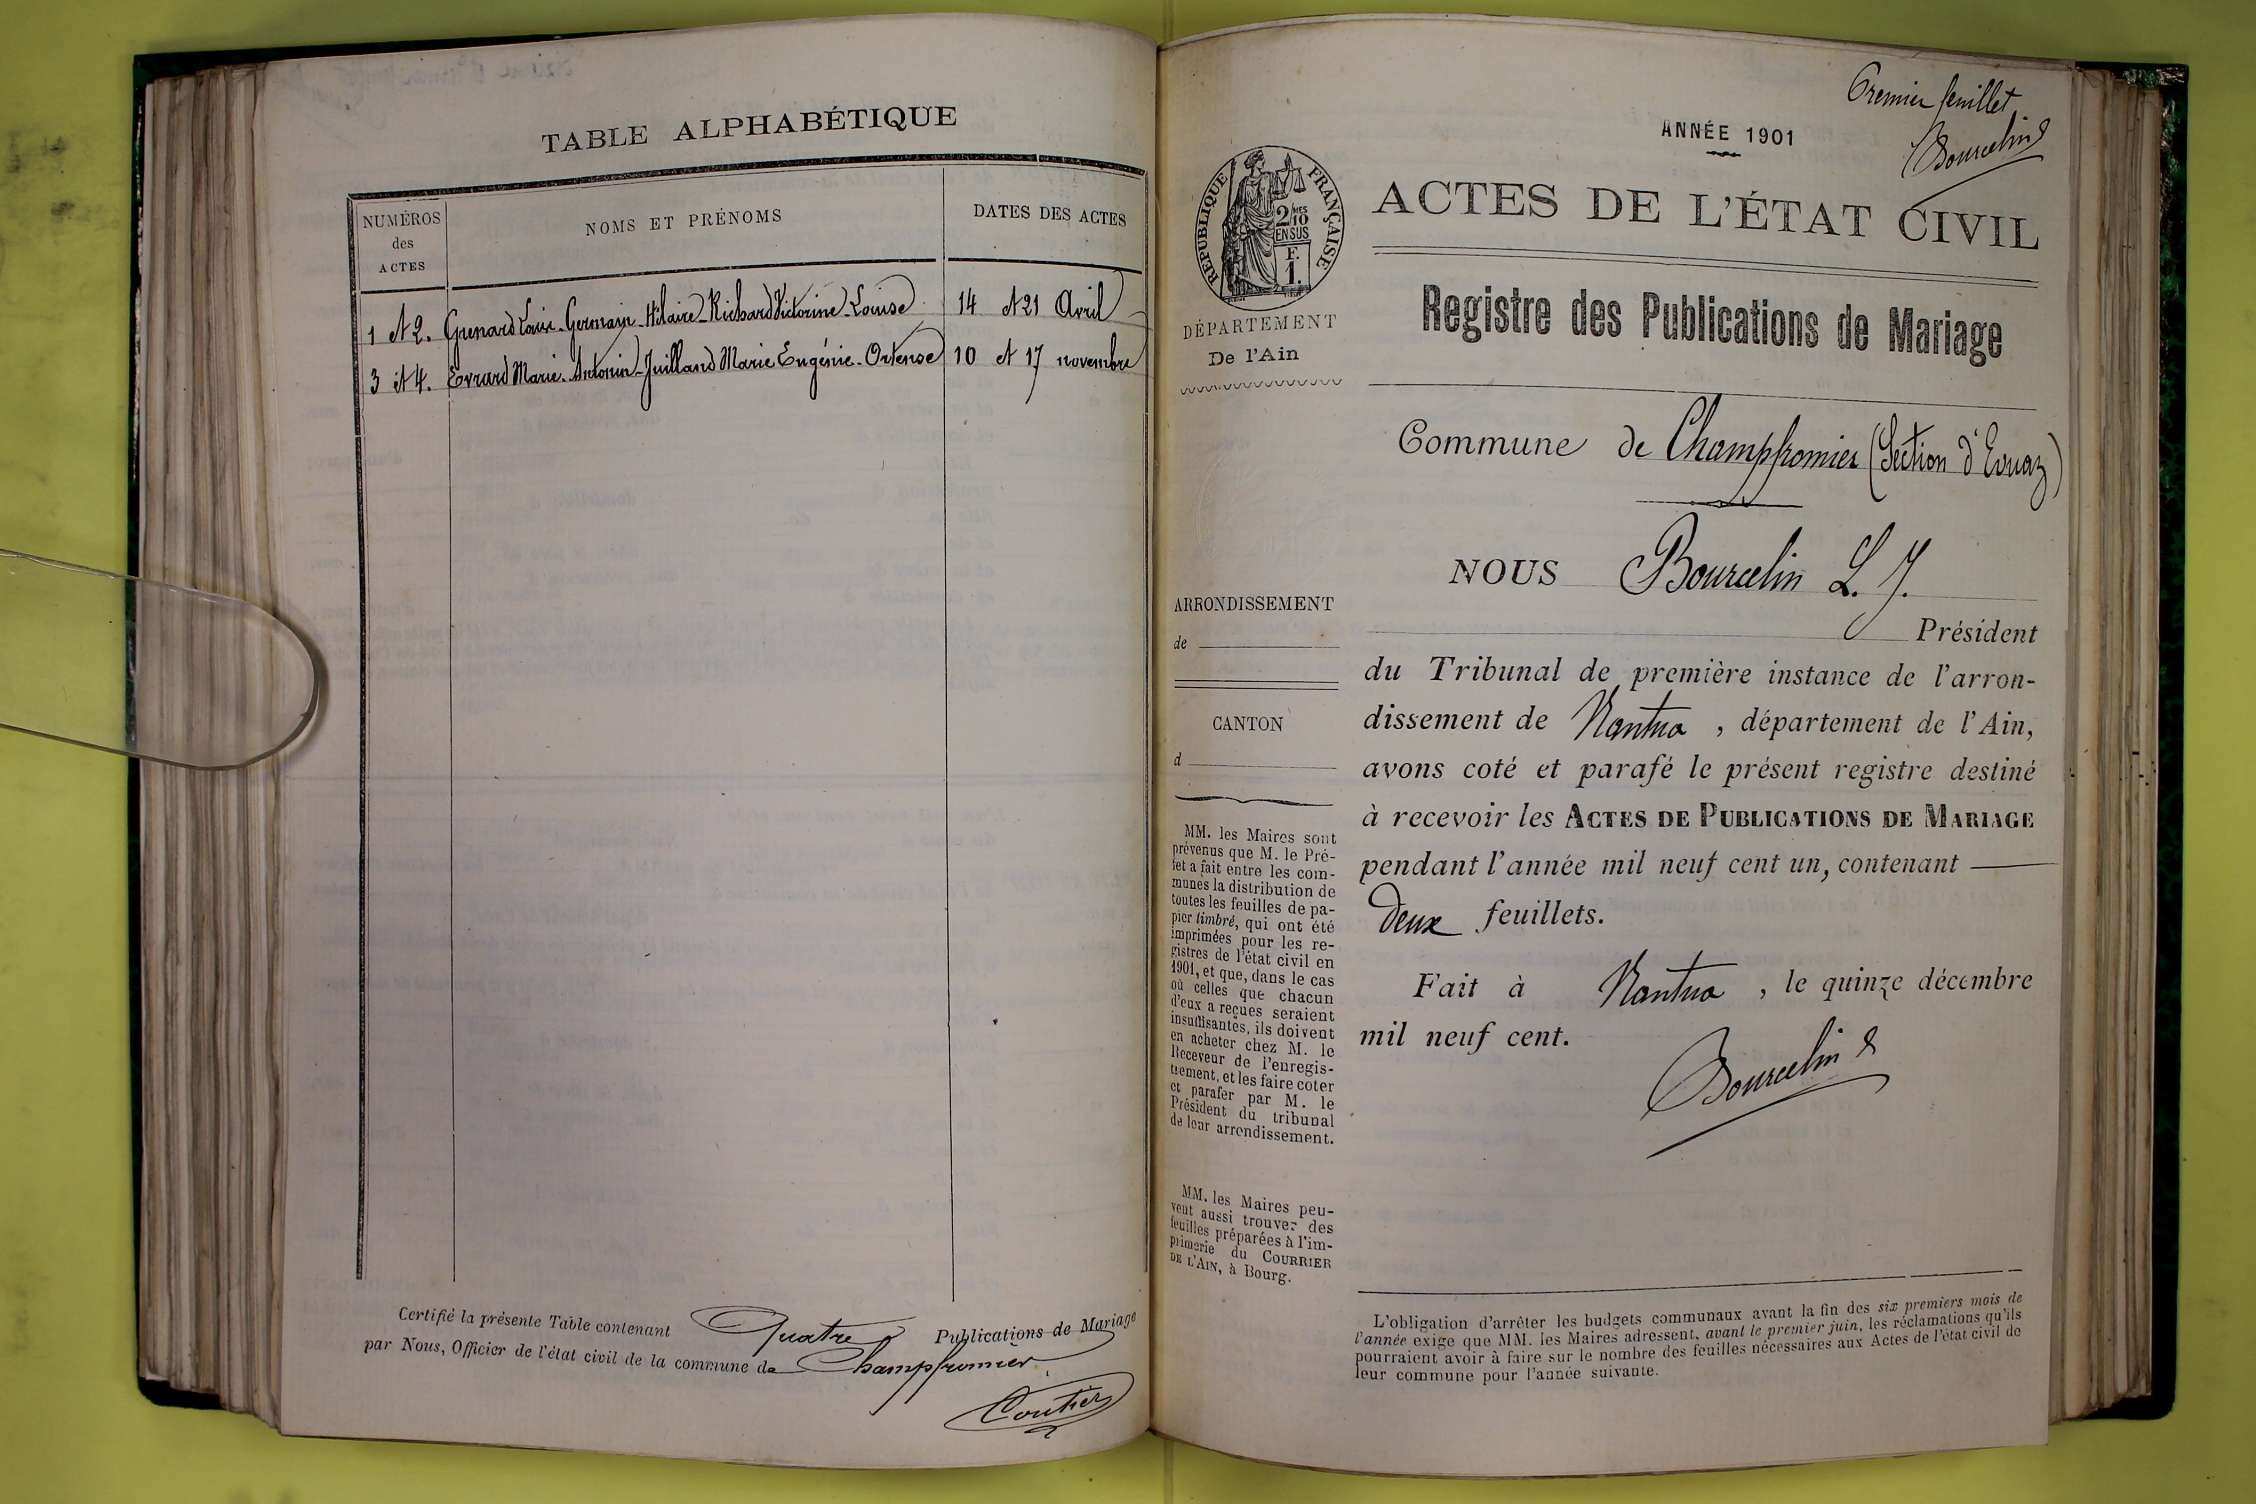 TABLE ALPHABÉTIQUE
NUMÉROS
des
ACTES
NOMS ET PRÉNOMS
DATES DES ACTES
1 et 2. Grenard Louis-Germain-Hilaire-Richard Victorine-Louise 14 et 21 Avril
3 et 4. Evrard Marie-Antonin-Juilland Marie Eugénie-Ortense 10 et 17 novembre
Certifié la présente Table contenant Quatre Publications de Mariage
par Nous, Officier de l'état civil de la commune de Champfromier.
Coutier
Premier feuillet
Bourcelin
ANNÉE 1901
ACTES DE L'ÉTAT CIVIL
RÉPUBLIQUE FRANÇAISE
2/10MES
EN SUS
F.
1.
DÉPARTEMENT
De l'Ain
Registre des Publications de Mariage
Commune de Champfromier (Section d'Evuaz)
NOUS Bourcelin L. J.
Président
du Tribunal de première instance de l'arron-
dissement de Nantua, département de l'Ain,
avons coté et parafé le présent registre destiné
à recevoir les ACTES DE PUBLICATIONS DE MARIAGE
pendant l'année mil neuf cent un, contenant
deux feuillets.
Fait à Nantua, le quinze décembre
mil neuf cent.
Bourcelin
ARRONDISSEMENT
de
CANTON
d
MM. les Maires sont
prévenus que M. le Pré-
fet a fait entre les com-
munes la distribution de
toutes les feuilles de pa-
pier timbré, qui ont été
imprimées pour les re-
gistres de l'état civil en
1901, et que, dans le cas
où celles que chacun
d'eux a reçues seraient
insuffisantes, ils doivent
en acheter chez M. le
Receveur de l'enregis-
trement, et les faire coter
et parafer par M. le
Président du tribunal
de leur arrondissement.
MM. les Maires peu-
vent aussi trouver des
feuilles préparées à l'im-
primerie du COURRIER
DE L'AIN, à Bourg.
L'obligation d'arrêter les budgets communaux avant la fin des six premiers mois de
l'année exige que MM. les Maires adressent, avant le premier juin, les réclamations qu'ils
pourraient avoir à faire sur le nombre des feuilles nécessaires aux Actes de l'état civil de
leur commune pour l'année suivante.